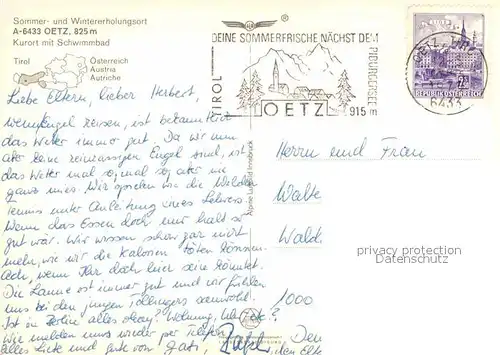 Sommer- und Wintererholungsort
A-6433 OETZ, 825 m
Kurort mit Schwimmbad
Tirol
Österreich
Austria
Autriche
DEINE SOMMERFRISCHE NÄCHST DEM
PIBURGERSEE
TIROL
OETZ
915 m
OETZ, TIROL
6433
REPUBLIK ÖSTERREICH
Liebe Eltern, lieber Herbert,
wenn Engel reisen, ist bekanntlich
das Wetter immer gut. Da wir
aber keine reinrassigen Engel sind, ist
das Wetter mal so, mal so, aber nie
ganz mies. Wir spielen wie die Wilden
Tennis unter Anleitung eines Lehrers
Wenn das Essen doch nur halb so
gut wär. Wir wissen schon gar nicht
mehr, wie wir die Kalorien töten können.
Ach, wenn Ihr doch hier sein könntet.
Die Laune ist immer gut und wir fühlen
uns bei den jungen
Ist in Berlin alles okay? Wohnung,
Wir melden uns wieder per Telefon
alles Liebe und Gute von
Alpine Luftbild Innsbruck
Herrn und Frau
Walte
Wald
1000
Den
®
Copyright watermark
protected Datenschutz